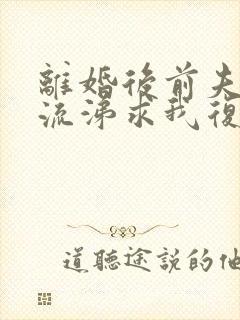 離婚後前夫
流涕求我復
道聽途說的他